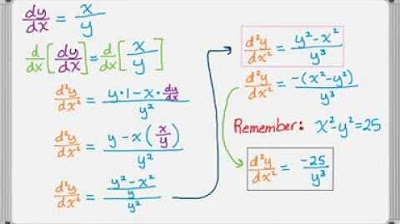 dy/dx = x/y
d/dx [dy/dx] = d/dx [x/y]
d²y/dx² = (y·1 - x·dy/dx)/y²
d²y/dx² = (y - x(x/y))/y²
d²y/dx² = ((y² - x²)/y)/y²
d²y/dx² = (y² - x²)/y³
d²y/dx² = -(x² - y²)/y³
Remember: x² - y² = 25
d²y/dx² = -25/y³